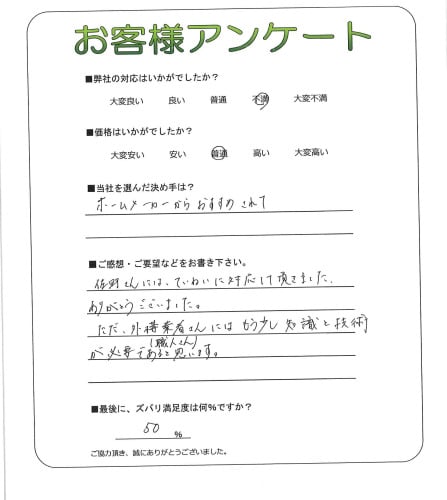 お客様アンケート
■弊社の対応はいかがでしたか？
大変良い 良い 普通 不満 大変不満
■価格はいかがでしたか？
大変安い 安い 普通 高い 大変高い
■当社を選んだ決め手は？
ホームメーカーからおすすめされて
■ご感想・ご要望などをお書き下さい。
佐野さんには、ていねいに対応して頂きました。
ありがとうございました。
ただ、外構業者さんにはもう少し知識と技術
(職人さん)
が必要であると思います。
■最後に、ズバリ満足度は何%ですか？
50 %
ご協力頂き、誠にありがとうございました。